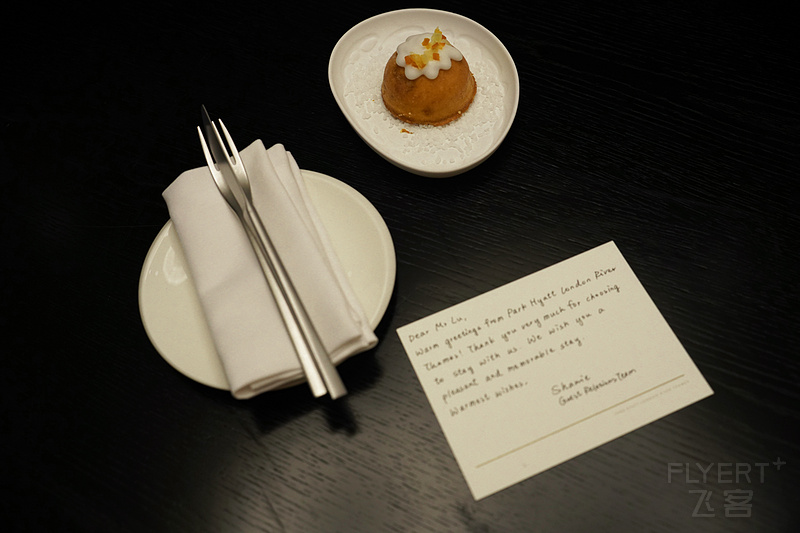 Dear Mr Lu,
Warm greetings from Park Hyatt London River
Thames! Thank you very much for choosing
to stay with us. We wish you a
pleasant and memorable stay.
Warmest wishes,
Guest Relations Team
FLYERT+
飞客